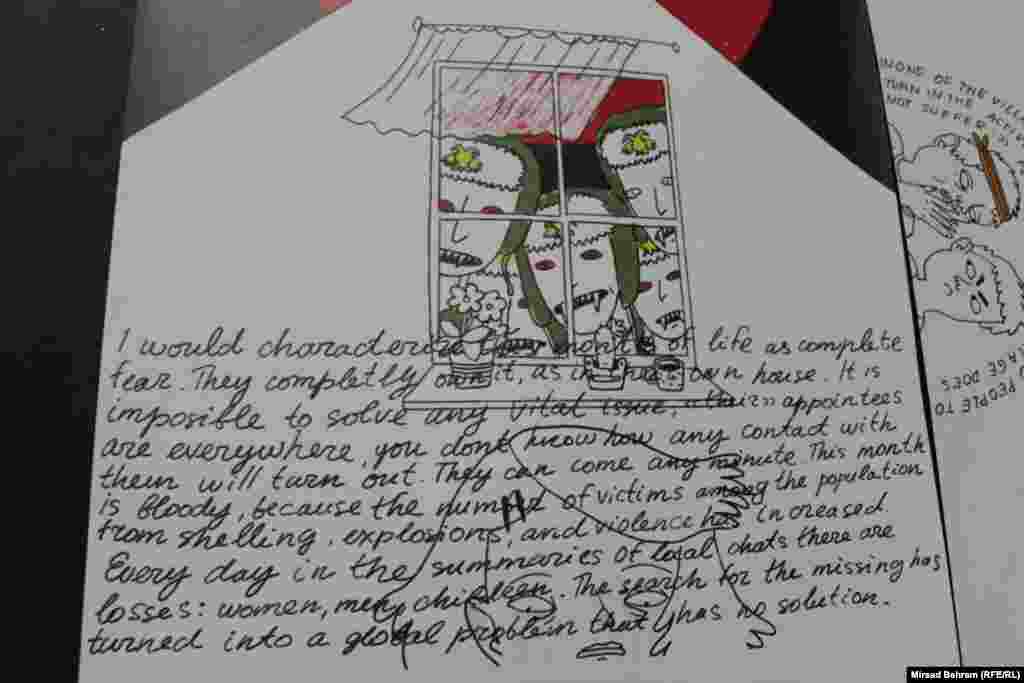 I would characterize these months of life as complete
fear. They completly own it, as in their own house. It is
imposible to solve any vital issue, «their» appointees
are everywhere, you dont know how any contact with
them will turn out. They can come any minute. This month
is bloody, because the number of victims among the population
from shelling, explosions, and violence has increased.
Every day in the summaries of local chats there are
losses: women, men, children. The search for the missing has
turned into a global problem that has no solution.
NONE OF THE
TURN IN THE
NOT SUFFER
PEOPLE TO
DOES
Mirsad Behram (RFE/RL)